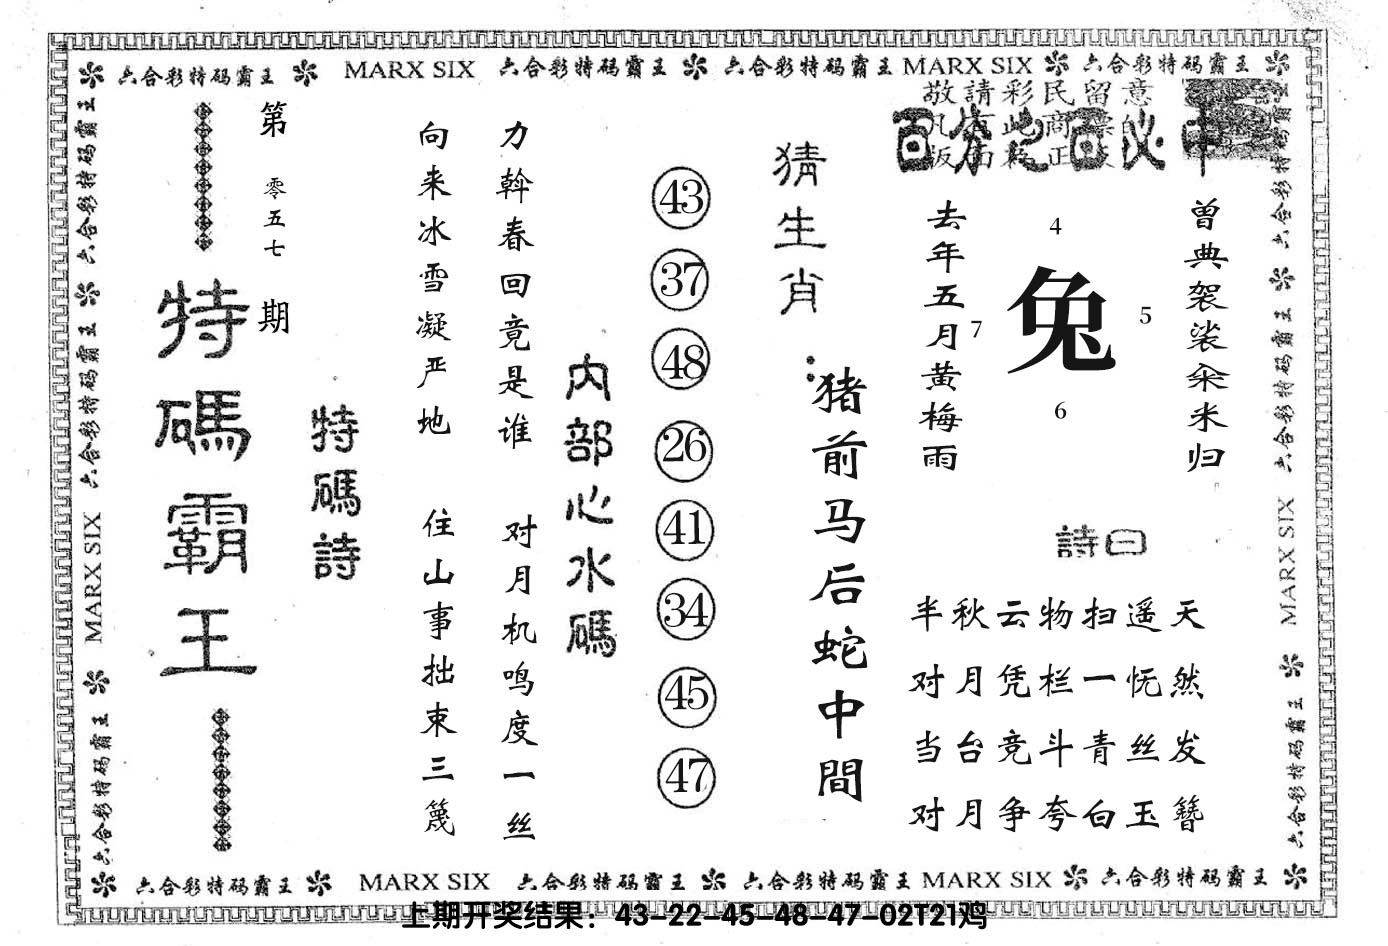 六合彩特码霸王 MARX SIX 六合彩特码霸王 六合彩特码霸王 MARX SIX 六合彩特码霸王
敬請彩民留意
百发百中
第零五七期
特碼霸王
特碼詩
向来冰雪凝严地
力斡春回竟是谁
住山事拙束三篾
对月机鸣度一丝
内部心水碼
43
37
48
26
41
34
45
47
猜生肖：
猪前马后蛇中間
去年五月黄梅雨
4
7
兔
5
6
曾典袈裟籴米归
詩曰
半秋云物扫遥天
对月凭栏一怃然
当台竞斗青丝发
对月争夸白玉簪
六合彩特码霸王 MARX SIX 六合彩特码霸王
六合彩特码霸王 MARX SIX 六合彩特码霸王
六合彩特码霸王 MARX SIX 六合彩特码霸王 六合彩特码霸王 MARX SIX 六合彩特码霸王
上期开奖结果：43-22-45-48-47-02T21鸡